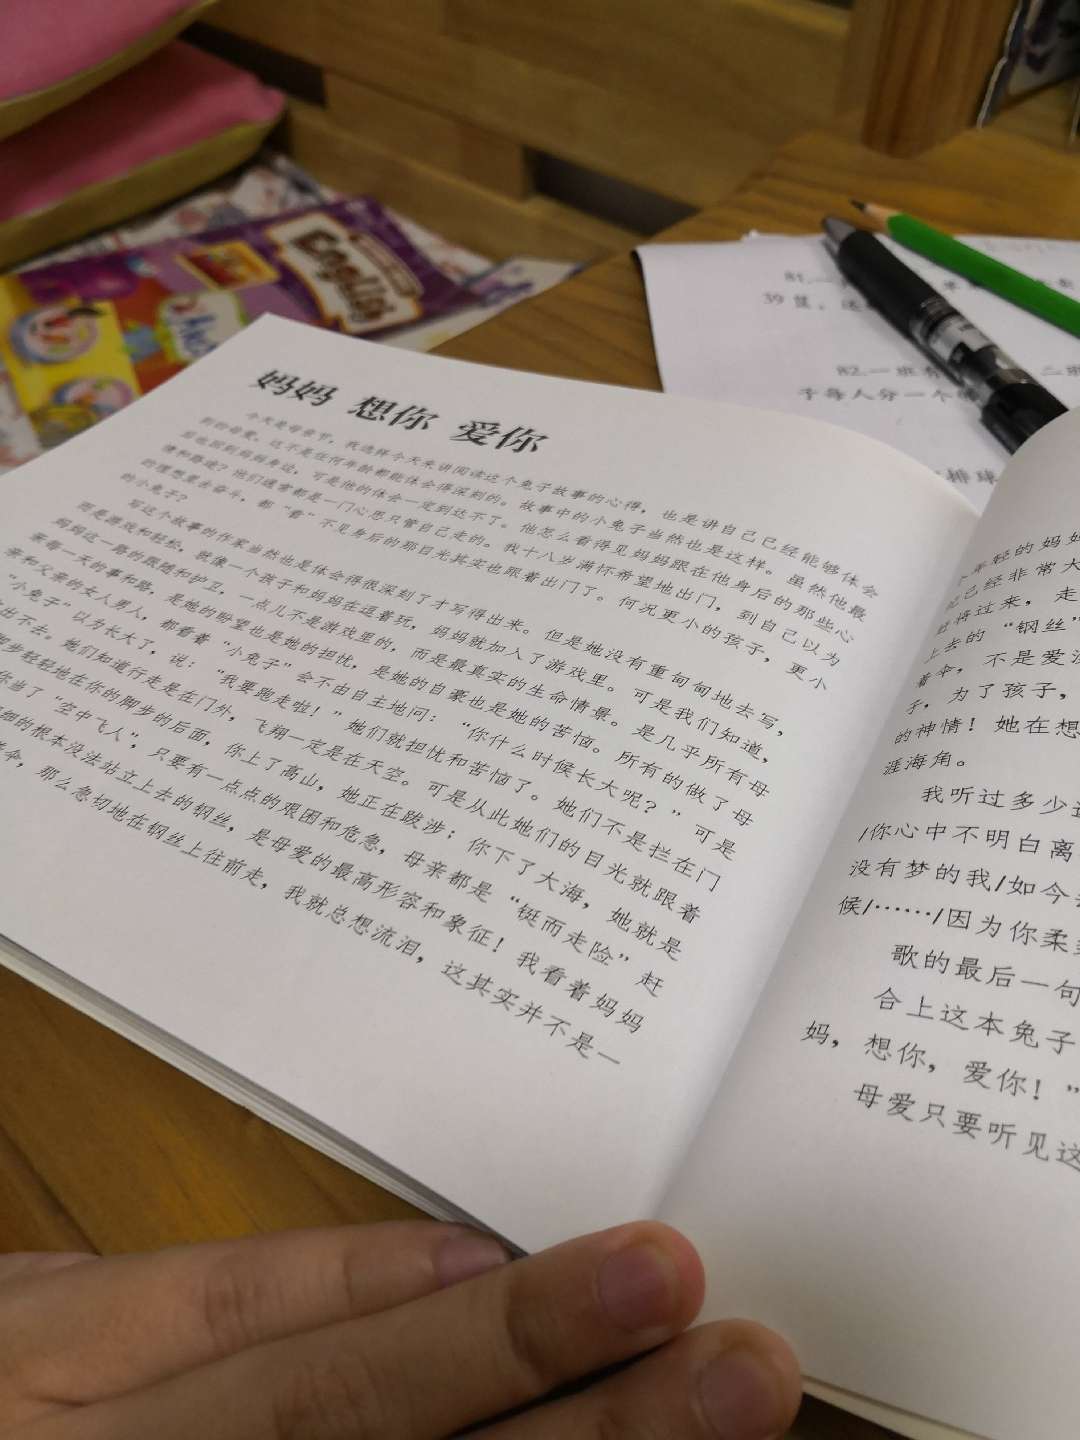 妈妈 想你 爱你
今天是母亲节，我选择今天来讲阅读这个兔子故事的心得，也是讲自己已经能够体会
到的母爱。这不是任何年龄都能体会得深刻的。故事中的小兔子当然也是这样。虽然他最
后也回到妈妈身边，可是他的体会一定到达不了。他怎么看得见妈妈跟在他身后的那些心
情和路途？他们通常都是一门心思只管自己走的。我十八岁满怀希望地出门，到自己以为
的理想里去奋斗，都“看”不见身后的那目光其实也跟着出门了。何况更小的孩子，更小
的小兔子？
写这个故事的作家当然也是体会得很深刻了才写得出来。但是她没有重甸甸地去写，
而是游戏和轻松，就像一个孩子和妈妈在逗着玩，妈妈就加入了游戏里。可是我们知道，
妈妈这一路的跟随和护卫，一点儿不是游戏里的，而是最真实的生命情景。是几乎所有母
亲每一天的事和路，是她的盼望也是她的担忧，是她的自豪也是她的苦恼。所有的做了母
亲和父亲的女人男人，都看着“小兔子”会不由自主地问：“你什么时候长大呢？”可是
“小兔子”以为长大了，说：“我要跑走啦！”她们就担忧和苦恼了。她们不是拦在门
出不去。她们知道行走是在门外，飞翔一定是在天空。可是从此她们的目光就跟着
步轻轻地在你的脚步的后面，你上了高山，她正在跋涉；你下了大海，她就是
你当了“空中飞人”，只要有一点点的艰困和危急，母亲都是“铤而走险”赶
细的根本没法站立上去的钢丝，是母爱的最高形容和象征！我看着妈妈
伞，那么急切地在钢丝上往前走，我就总想流泪，这其实并不是一
年轻的妈妈
已经非常大
将过来，走
上去的“钢丝”
着伞，不是爱
子，为了孩子，
的神情！她在想
涯海角。
我听过多少
/你心中不明白离
没有梦的我/如今
候/……/因为你柔
歌的最后一句
合上这本兔子
妈，想你，爱你！”
母爱只要听见这
English
81.一
39筐，
82.一班有
二班
子每人分一个
排球